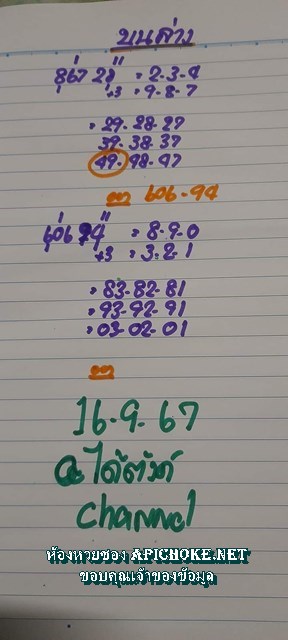 บนล่าง
= 2-3-4
+3 = 9-8-7
= 29-28-27
39-38-37
49-48-47
606-94
= 8-9-0
+3 = 3-2-1
= 83-82-81
= 93-92-91
= 03-02-01
16-9-67
channel
ห้องหวยซอง APICHOKE.NET
ขอบคุณเจ้าของข้อมูล